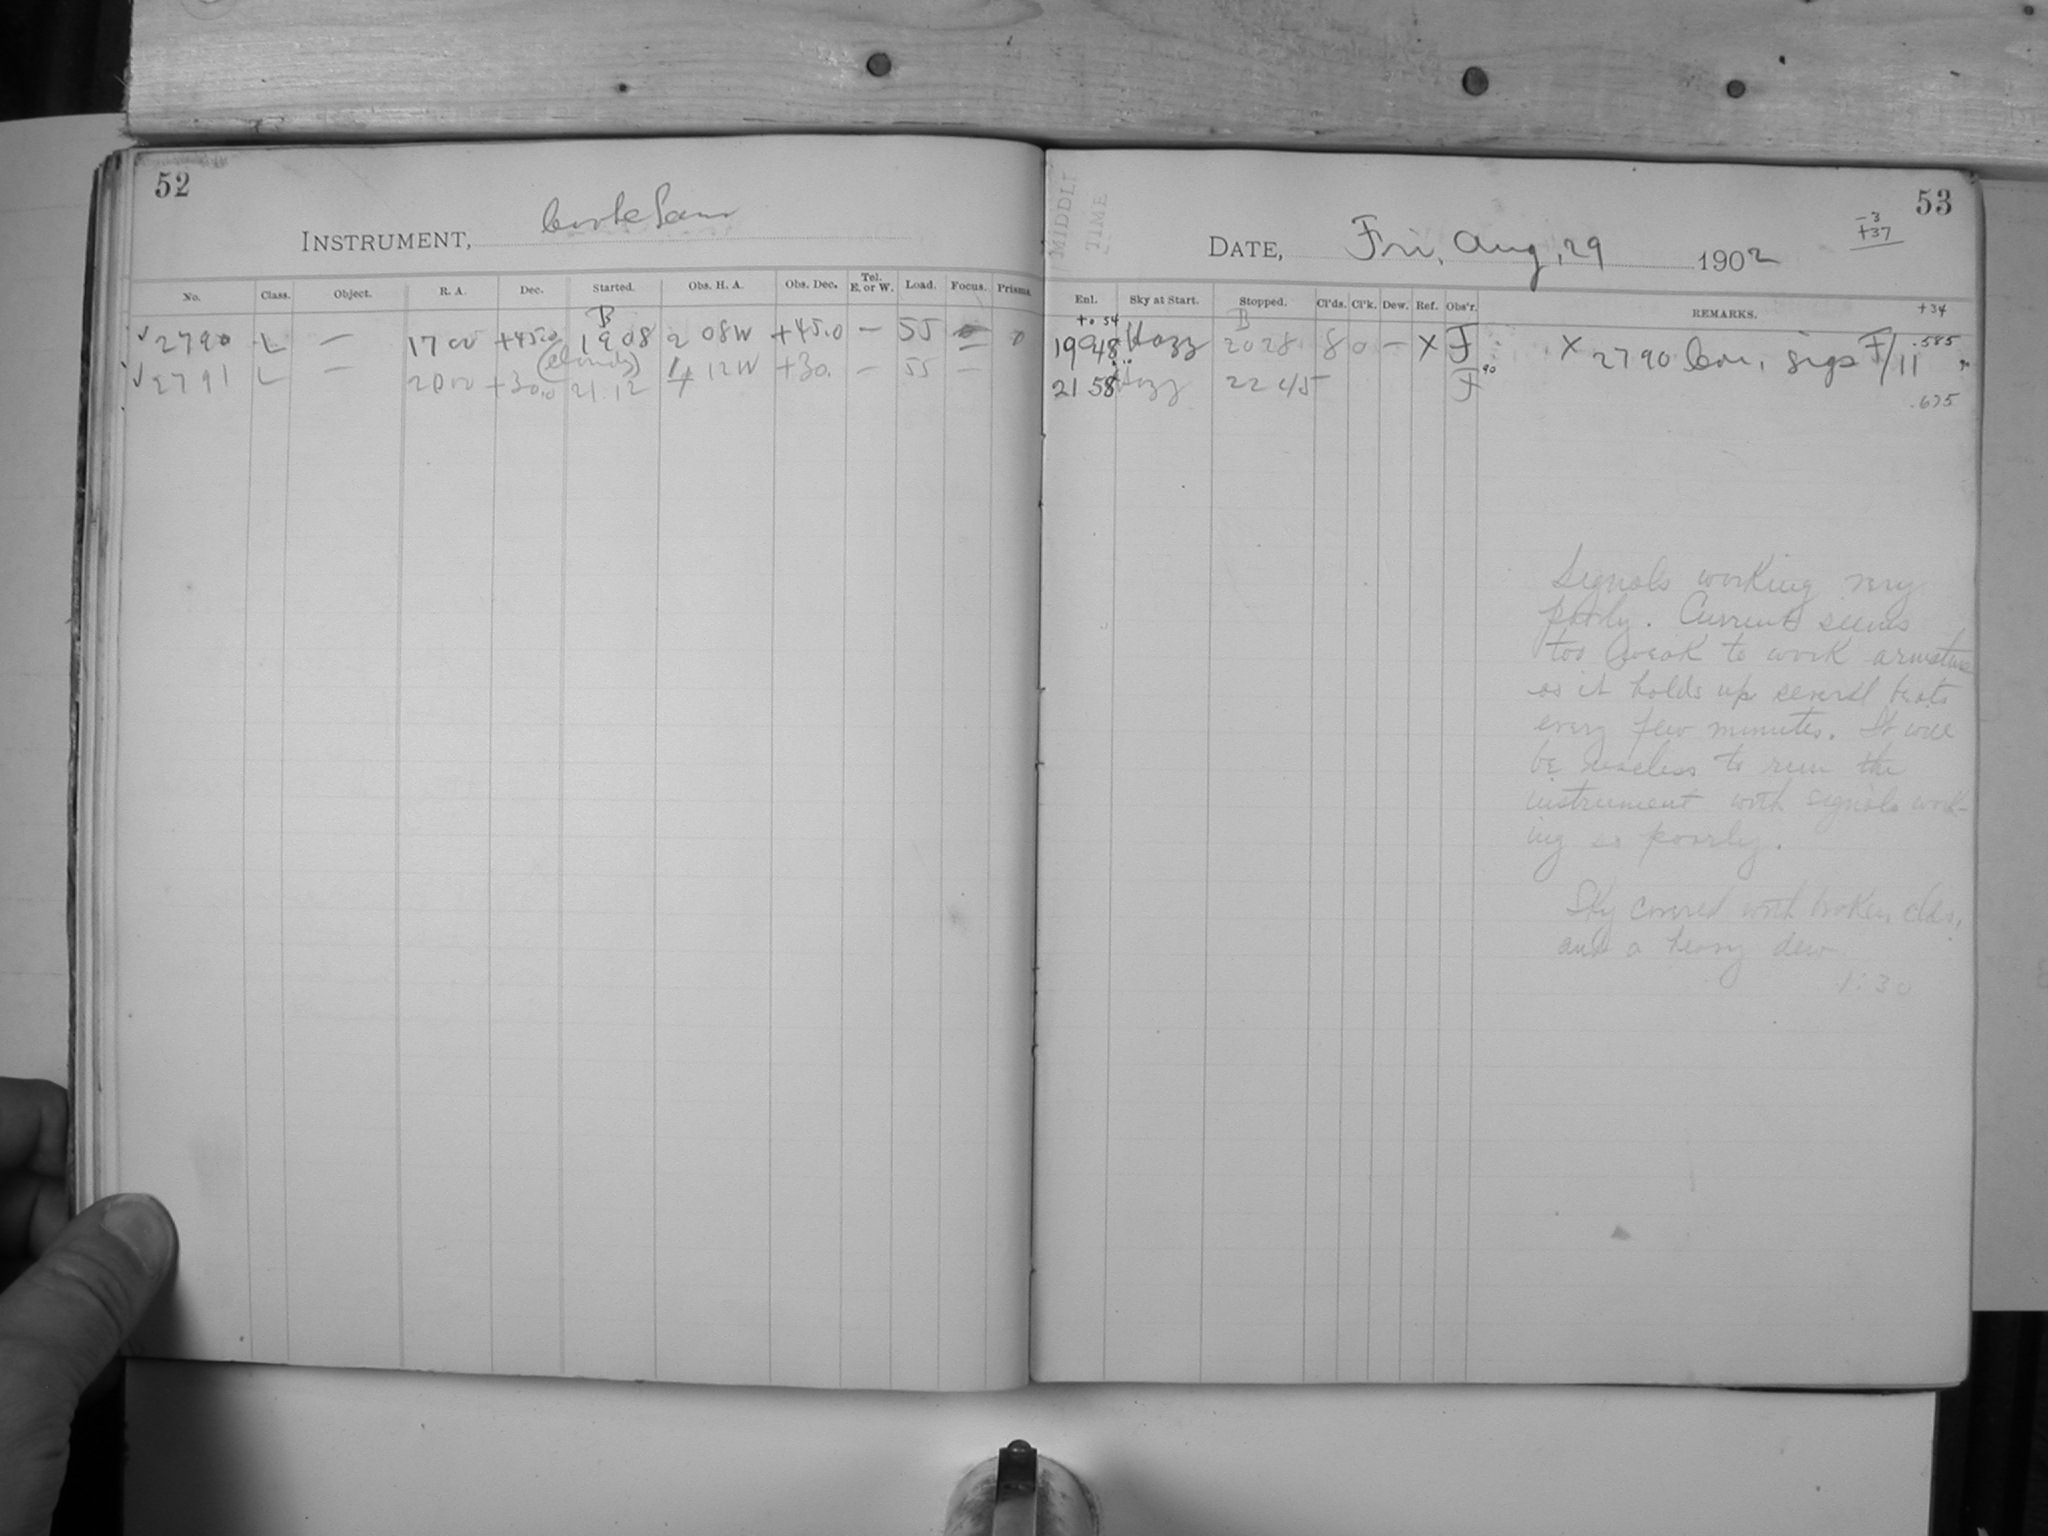 52
INSTRUMENT, Cooke Lens
No. Class. Object. R. A. Dec. Started. Obs. H. A. Obs. Dec. Tel. E. or W. Load. Focus. Prisms.
B
✓ 2790 L — 17 00 +45.0 19 08 2 08W +45.0 — 55 — 0
(clouds)
✓ 2791 L — 20 00 +30.0 21.12 1 12W +30. — 55 —
MIDDLE
TIME
53
-3
+37
DATE, Fri, Aug, 29 1902
Enl. Sky at Start. Stopped. Cl'ds. Cl'k. Dew. Ref. Obs'r. REMARKS. +34
+0 54 B
19 48 Hazy 20 28 8 0 — X F X 2790 Cor. sigs F/11 .585
90
21 58 Hazy 22 45 F
.675
Signals working very
poorly. Current seems
too weak to work armature
as it holds up several beats
every few minutes. It will
be useless to run the
instrument with signals work-
ing so poorly.
Sky covered with broken clds,
and a heavy dew
1:30